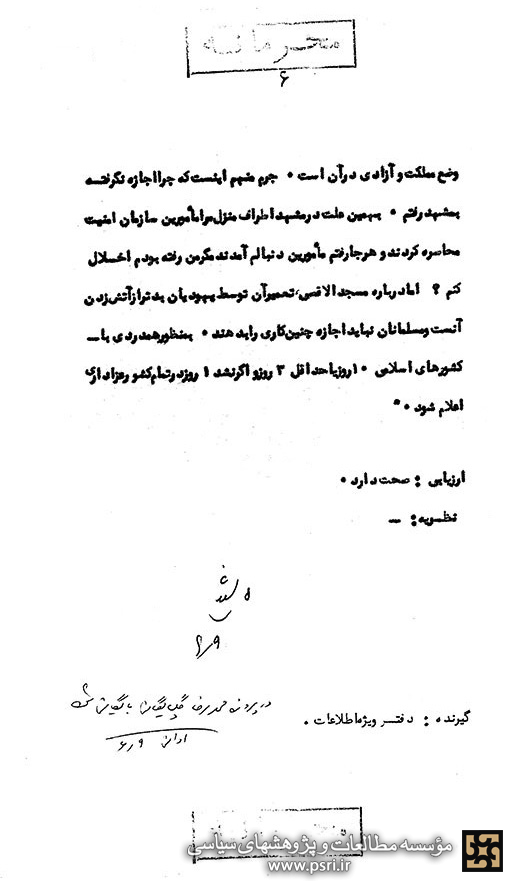 محرمانه
۶
وضع مملکت و آزادی در آن است ۰ جرم منهم اینست که چرا اجازه نگرفته
بمشهد رفتم ۰ بهمین علت در مشهد اطراف منزل مرا مأمورین سازمان امنیت
محاصره کردند و هر جا رفتم مأمورین دنبالم آمدند مگر من رفته بودم اخلال
کنم ؟ اما درباره مسجد الاقصی، تعمیر آن توسط یهودیان بدتر از آتش زدن
آنست و مسلمانان نباید اجازه چنین کاری را بدهند ۰ بمنظور همدردی با ــ
کشورهای اسلامی ۱۰ روز یا حداقل ۳ روز و اگر نشد ۱ روز در تمام کشور عزاداری
اعلام شود ۰"
ارزیابی : صحت دارد ۰
نظریه : ــ
۶/۹
در پرونده محمدرضا گلپایگانی بایگانی
۶/۹
گیرنده : دفتر ویژه اطلاعات ۰
مؤسسه مطالعات و پژوهشهای سیاسی
www.psri.ir